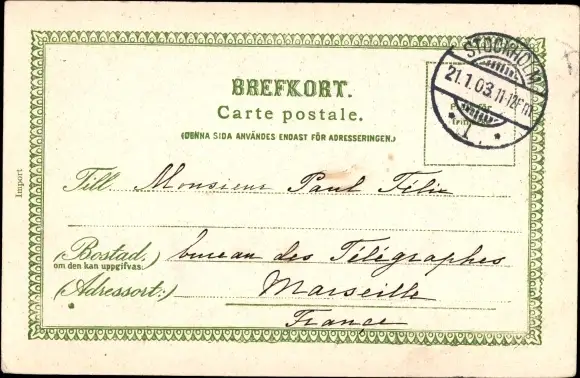 BREFKORT.
Carte postale.
(DENNA SIDA ANVÄNDES ENDAST FÖR ADRESSERINGEN.)
STOCKHOLM
21.1.03.11-12Fm.
1.
Import
Till Monsieur Paul Félix
(Bostad, bureau des Télégraphes
om den kan uppgifvas:)
(Adressort:) Marseille
France